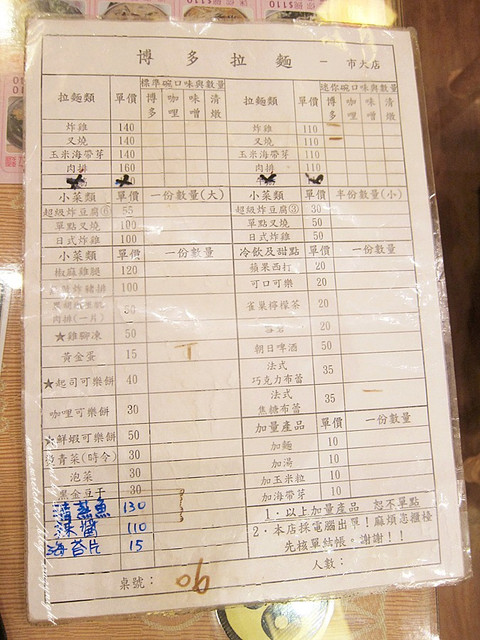 博多拉麵 － 市大店
拉麵類 單價 標準碗口味與數量 拉麵類 單價 迷你碗口味與數量
博多 咖哩 味噌 清燉 博多 咖哩 味噌 清燉
炸雞 140 炸雞 110
叉燒 140 叉燒 110
玉米海帶芽 140 玉米海帶芽 110
肉排 160 肉排 110
小菜類 單價 一份數量(大) 小菜類 單價 半份數量(小)
超級炸豆腐⑥ 55 超級炸豆腐③ 30
單點叉燒 100 單點叉燒 50
日式炸雞 100 日式炸雞 50
小菜類 單價 一份數量 冷飲及甜點 單價 一份數量
椒麻雞腿 120 蘋果西打 20
炸豬排 100 可口可樂 20
肉排(一片) 50 雀巢檸檬茶 20
★雞腳凍 50 雪碧 20
黃金蛋 15 朝日啤酒 50
★起司可樂餅 40 法式巧克力布蕾 35
咖哩可樂餅 30 法式焦糖布蕾 35
★鮮蝦可樂餅 50 加量產品 單價 一份數量
燙青菜(時令) 30 加麵 10
泡菜 30 加湯 10
黑金豆干 30 加玉米粒 10
清蒸魚 130 加海帶芽 10
110 1．以上加量產品 恕不單點
海苔片 15 2．本店採電腦出單！麻煩您離檯
先核單結帳。謝謝！！
桌號： 90 人數：